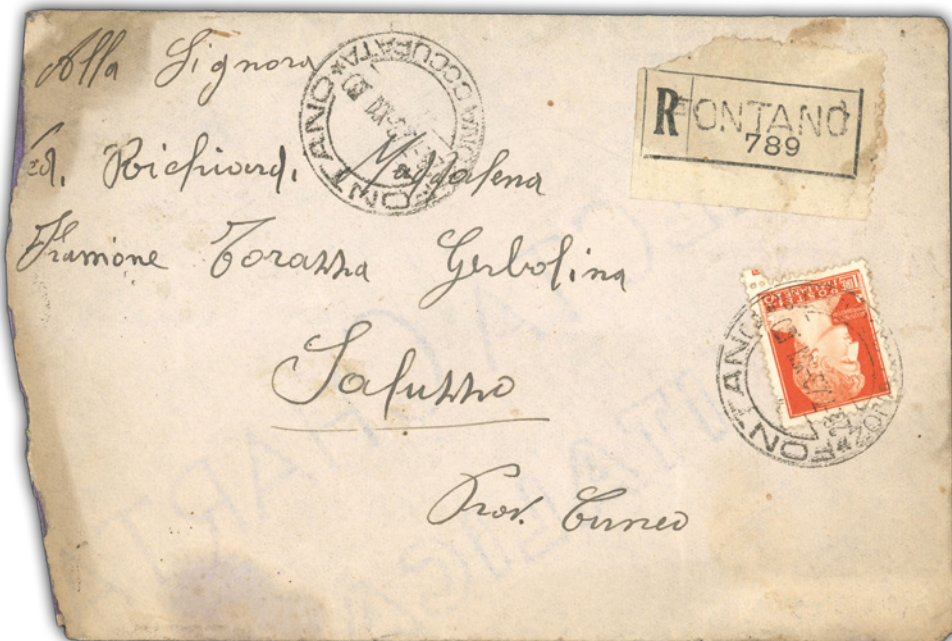 Alla Signora
Ved. Richiard. Maddalena
Framione Torazza Gerbolina
Saluzzo
Prov. Cuneo
R FONTANO
789
FONTANO
ZONA OCCUPATA
POSTE ITALIANE
FONTANO